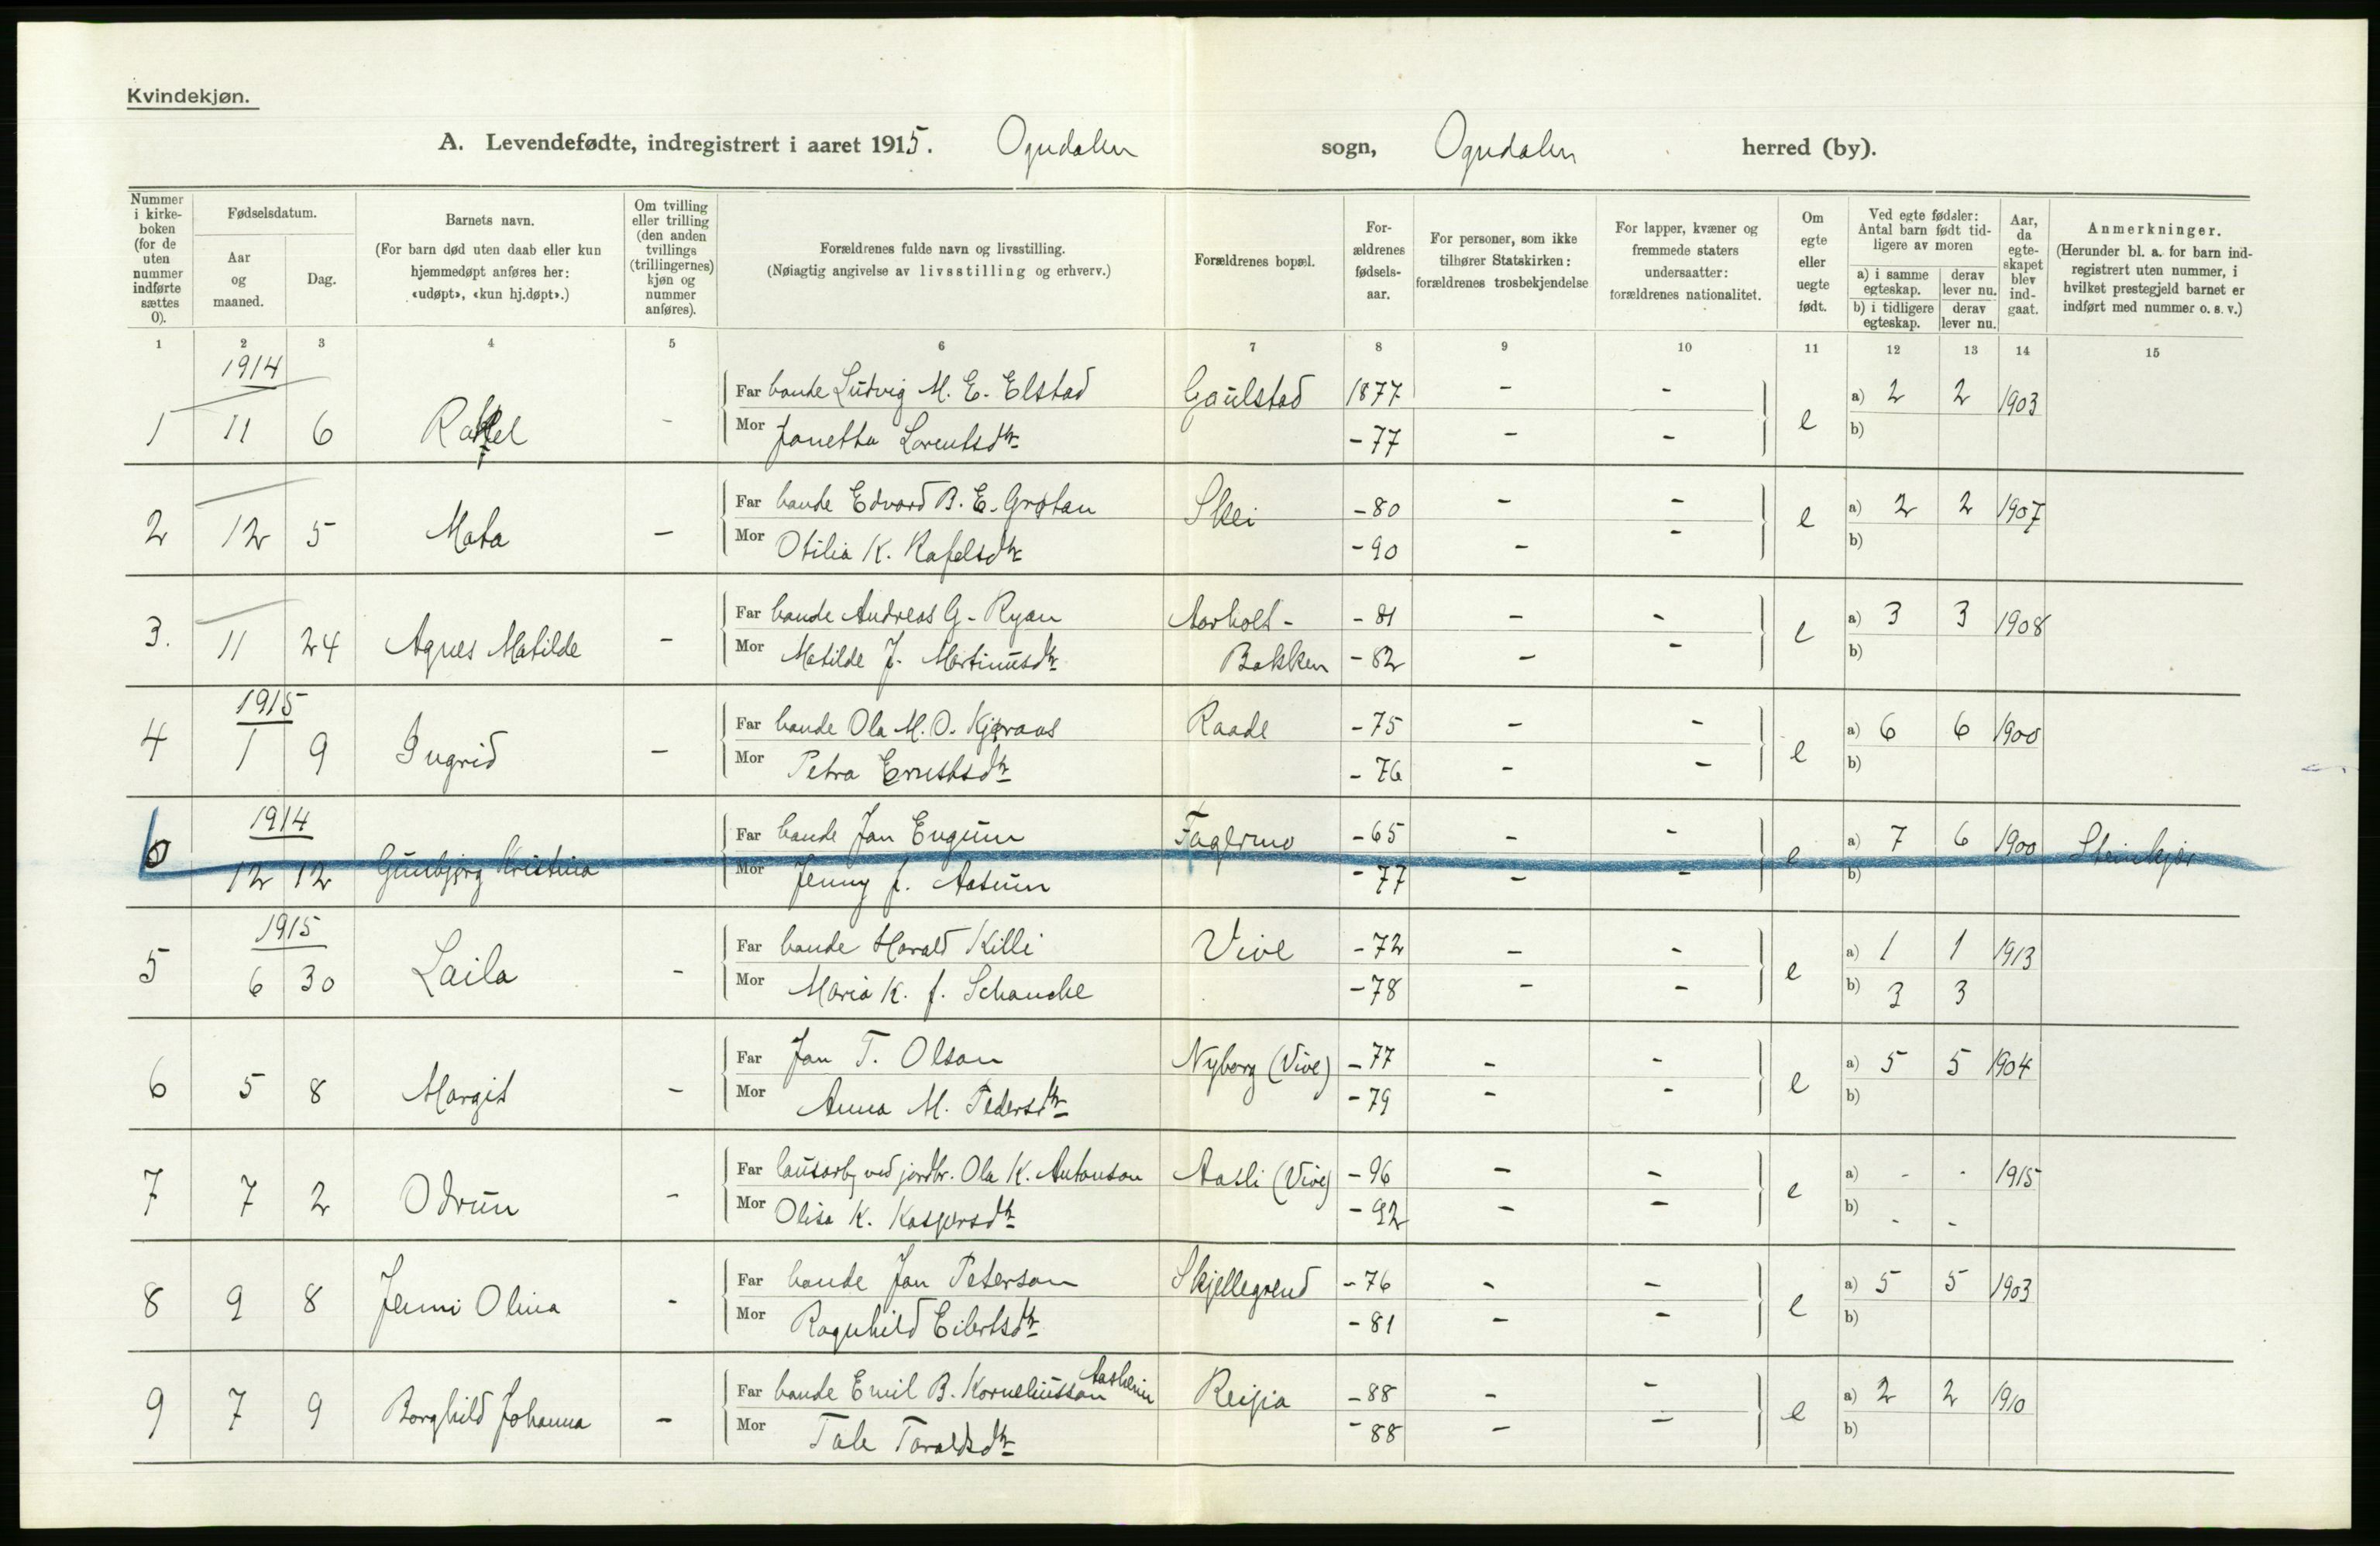 Kvindekjøn.
A. Levendefødte, indregistrert i aaret 1915. Ogndalen sogn, Ogndalen herred (by).
Nummer i kirke-boken (for de uten nummer indførte sættes 0).
Fødselsdatum.
Aar og maaned.
Dag.
Barnets navn.
(For barn død uten daab eller kun hjemmedøpt anføres her: «udøpt», «kun hj.døpt».)
Om tvilling eller trilling (den anden tvillings (trillingernes) kjøn og nummer anføres).
Forældrenes fulde navn og livsstilling.
(Nøiagtig angivelse av livsstilling og erhverv.)
Forældrenes bopæl.
For-ældrenes fødsels-aar.
For personer, som ikke tilhører Statskirken: forældrenes trosbekjendelse
For lapper, kvæner og fremmede staters undersaatter: forældrenes nationalitet.
Om egte eller uegte født.
Ved egte fødsler: Antal barn født tid-ligere av moren
a) i samme egteskap. derav lever nu.
b) i tidligere egteskap. derav lever nu.
Aar, da egte-skapet blev ind-gaat.
Anmerkninger.
(Herunder bl. a. for barn ind-registrert uten nummer, i hvilket prestegjeld barnet er indført med nummer o. s. v.)
1 2 3 4 5 6 7 8 9 10 11 12 13 14 15
1914
Far bonde Ludvig M. E. Elstad Gaulstad 1877 - - a) 2 2 1903
1 11 6 Rakel - Mor Janetta Lorentsdtr - 77 - - e b)
Far bonde Edvard B. E. Grøtan Skei - 80 - - a) 2 2 1907
2 12 5 Mata - Mor Otilia K. Rafelsdtr - 90 - - e b)
Far bonde Andreas G. Ryan Aarholt- - 81 - - a) 3 3 1908
3. 11 24 Agnes Matilde - Mor Matilde J. Martinusdtr Bakken - 82 - - e b)
1915
Far bonde Ola M. O. Kjøraas Raade - 75 - - a) 6 6 1900
4 1 9 Ingrid - Mor Petra Ernstsdtr - 76 - - e b)
1914
Far bonde Jon Engum Faglmo - 65 - - a) 7 6 1900 Steinkjær
0 12 12 Gunbjørg Kristina Mor Jenny f. Aasum - 77 - - e b)
1915
Far bonde Harald Killi Vive - 72 - - a) 1 1 1913
5 6 30 Laila - Mor Maria K. f. Schanche - 78 - - e b) 3 3
Far Jon T. Olson Nyborg (Vive) - 77 - - a) 5 5 1904
6 5 8 Margit - Mor Anna M. Pedersdtr - 79 - - e b)
Far lausarb. ved jordbr. Ola K. Antonson Aasli (Vive) - 96 - - a) - - 1915
7 7 2 Odrun - Mor Olisa K. Kaspersdtr - 92 - - e b) - -
Far bonde Jon Peterson Skjellegrend - 76 - - a) 5 5 1903
8 9 8 Jenni Olina - Mor Ragnhild Eilertsdtr - 81 - - e b)
Far bonde Emil B. Korneliusson Aasheim Reisia - 88 - - a) 2 2 1910
9 7 9 Borghild Johanna - Mor Tale Taraldsdtr - 88 - - e b)